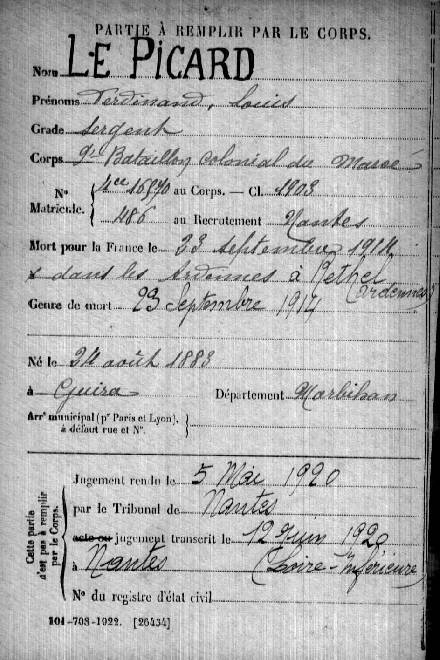 PARTIE À REMPLIR PAR LE CORPS.
Nom LE PICARD
Prénoms Ferdinand, Louis
Grade Sergent
Corps 9e Bataillon Colonial du Maroc
No Matricule. { 16570 au Corps. — Cl. 1903
486 au Recrutement Nantes
Mort pour la France le 23 septembre 1914
dans les Ardennes à Rethel (Ardennes)
Genre de mort 23 Septembre 1914
Né le 24 août 1883
à Guira Département Morbihan
Arrt municipal (pr Paris et Lyon), à défaut rue et No. }
Cette partie n'est pas à remplir par le Corps.
Jugement rendu le 5 Mai 1920
par le Tribunal de Nantes
acte ou jugement transcrit le 12 Juin 1920
à Nantes (Loire-Inférieure)
No du registre d'état civil
101-708-1922. [26434]